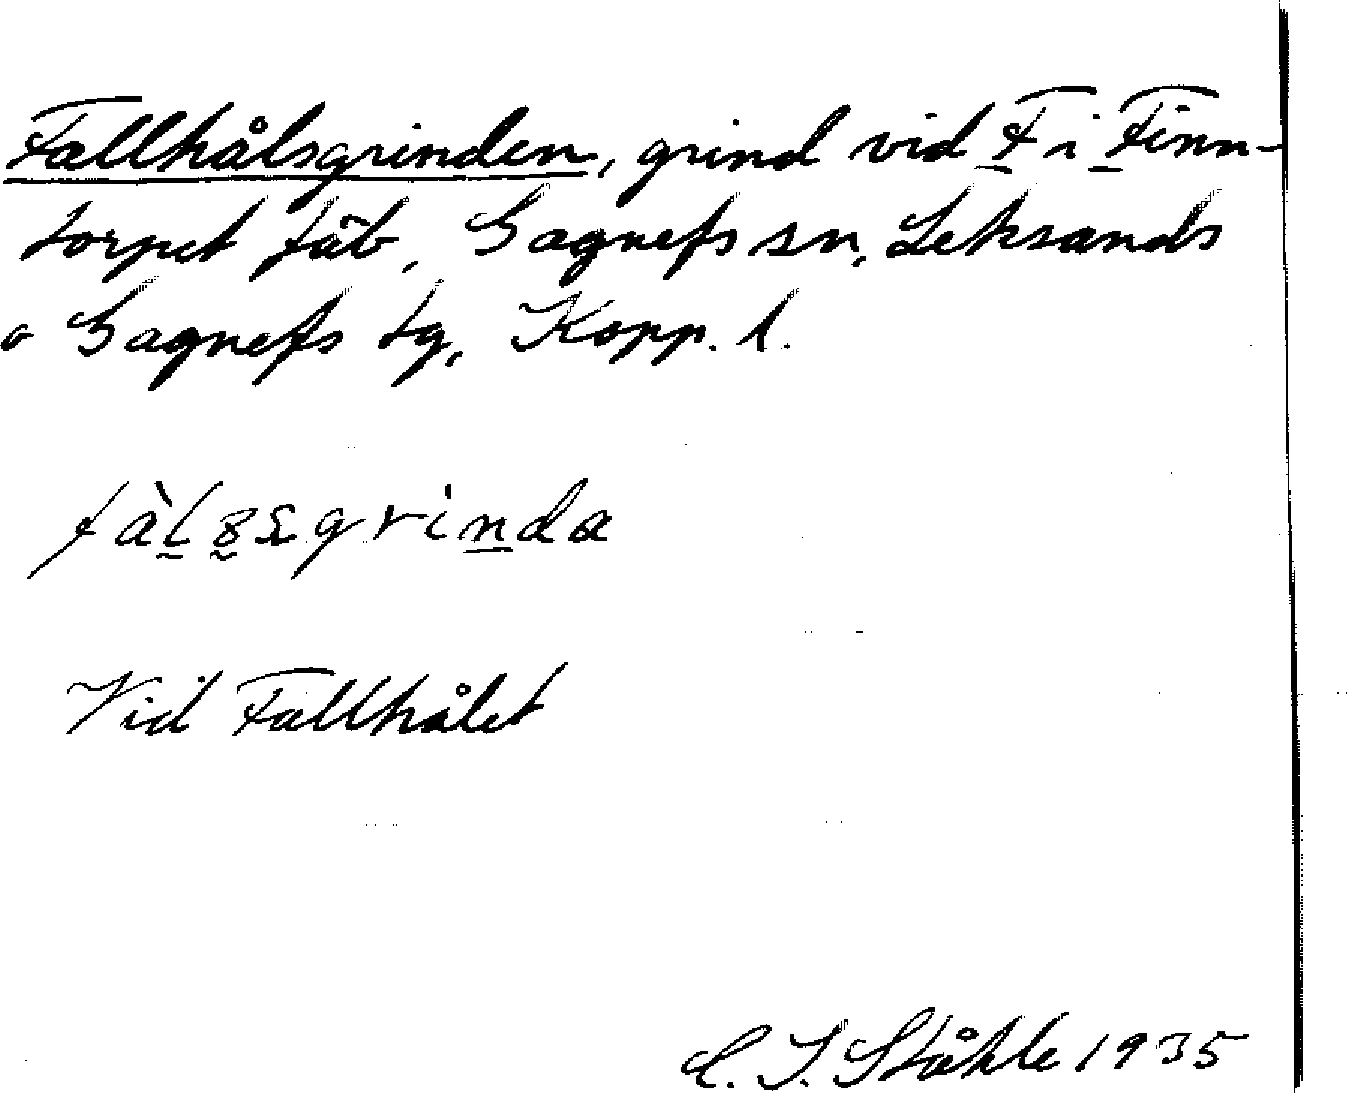 Fallhålsgrinden, grind vid F i Finn-
torpet fäb, Gagnefs sn, Leksands
o Gagnefs tg, Kopp. l.
Vid Fallhålet
C. I. Ståhle 1935